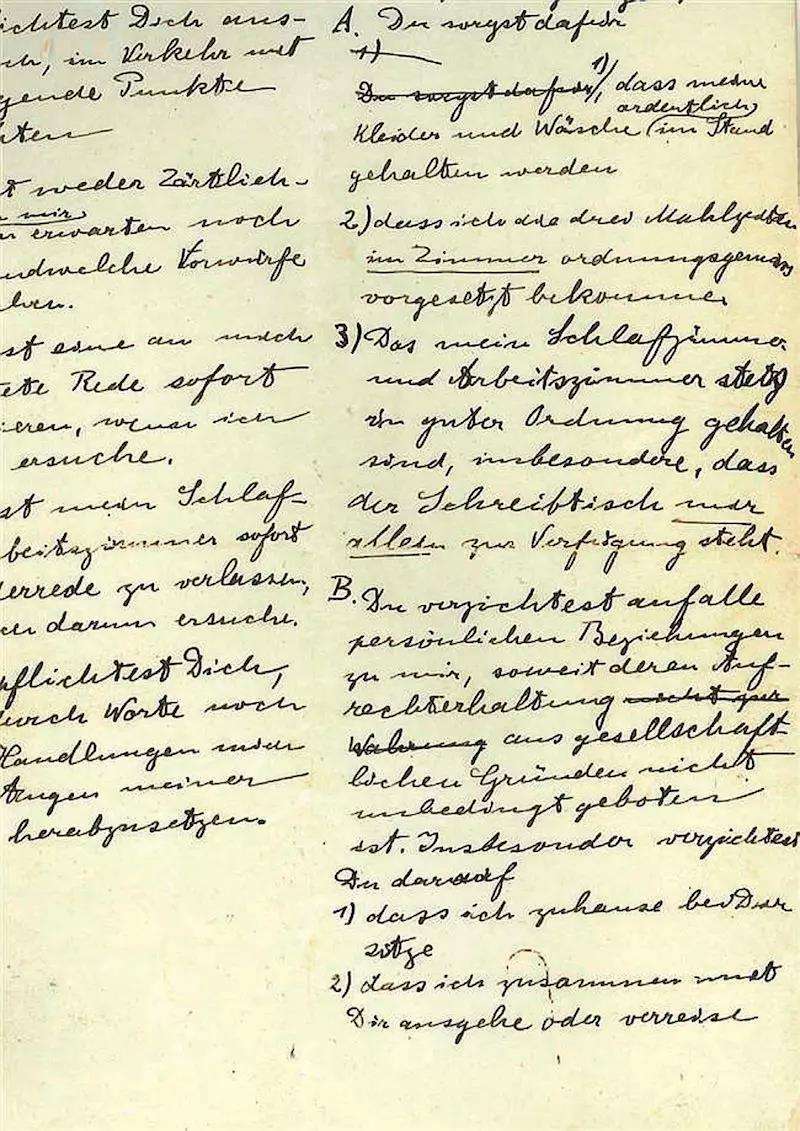 ichtest Dich aus-
ch, im Verkehr mit
gende Punkte
hten
t weder Zärtlich-
n mir
n erwarten noch
ndwelche Vorwürfe
hen.
st eine an mich
tete Rede sofort
ieren, wenn ich
ersuche.
st mein Schlaf-
beitszimmer sofort
derrede zu verlassen,
ich darum ersuche.
pflichtest Dich,
durch Worte noch
Handlungen mich
Augen meiner
herabzusetzen.
A. Du sorgst dafür
1)
Du sorgst dafür 1), dass meine
ordentlich
Kleider und Wäsche im Stand
gehalten werden
2) dass ich die drei Mahlzeiten
im Zimmer ordnungsgemäss
vorgesetzt bekomme
3) Das mein Schlafzimmer
und Arbeitszimmer stets
in guter Ordnung gehalten
sind, insbesondere, dass
der Schreibtisch mir
allein zur Verfügung steht.
B. Du verzichtest auf alle
persönlichen Beziehungen
zu mir, soweit deren Auf-
rechterhaltung nicht zur
Wahrung aus gesellschaft-
lichen Gründen nicht
unbedingt geboten
ist. Insbesonder verzichtest
Du darauf
1) dass ich zuhause bei Dir
sitze
2) dass ich zusammen mit
Dir ausgehe oder verreise